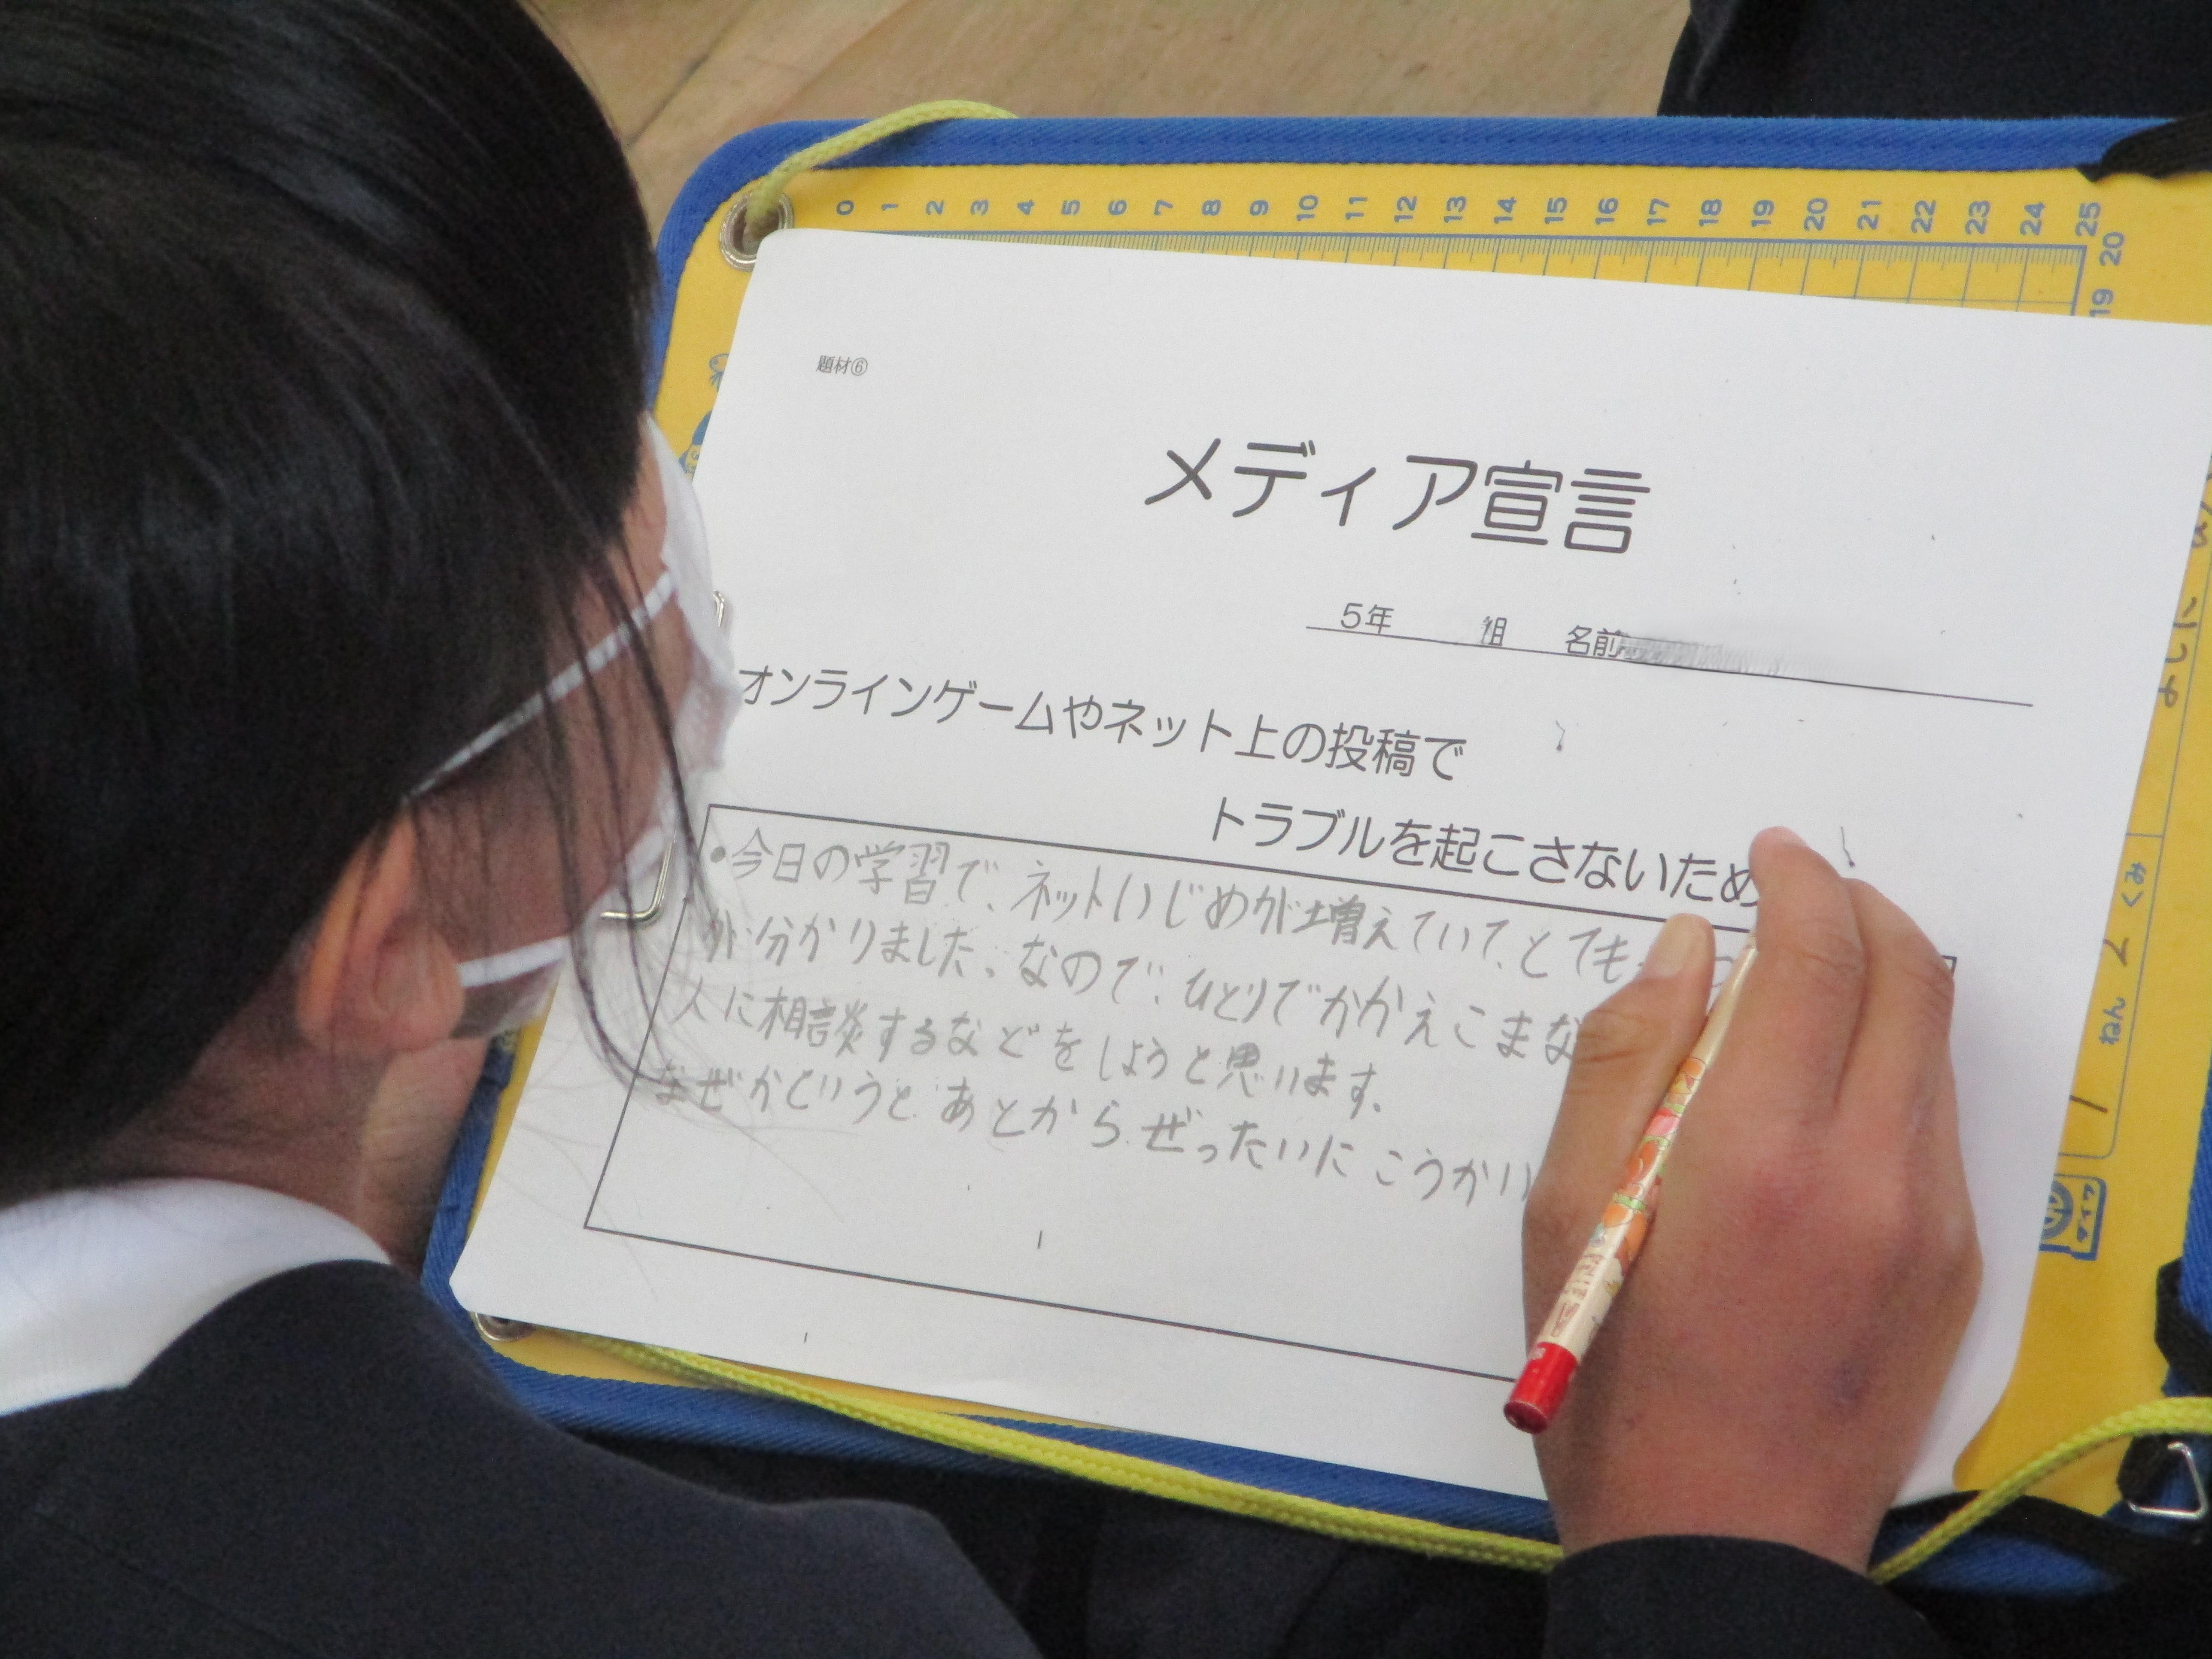 0 1 2 3 4 5 6 7 8 9 10 11 12 13 14 15 16 17 18 19 20 21 22 23 24 25
20
19
題材⑥
メディア宣言
5年 組 名前
オンラインゲームやネット上の投稿で
トラブルを起こさないため
•今日の学習で、ネットいじめが増えていて、とても
が分かりました。なので、ひとりでかかえこまな
人に相談するなどをしようと思います。
なぜかというと、あとからぜったいにこうかい